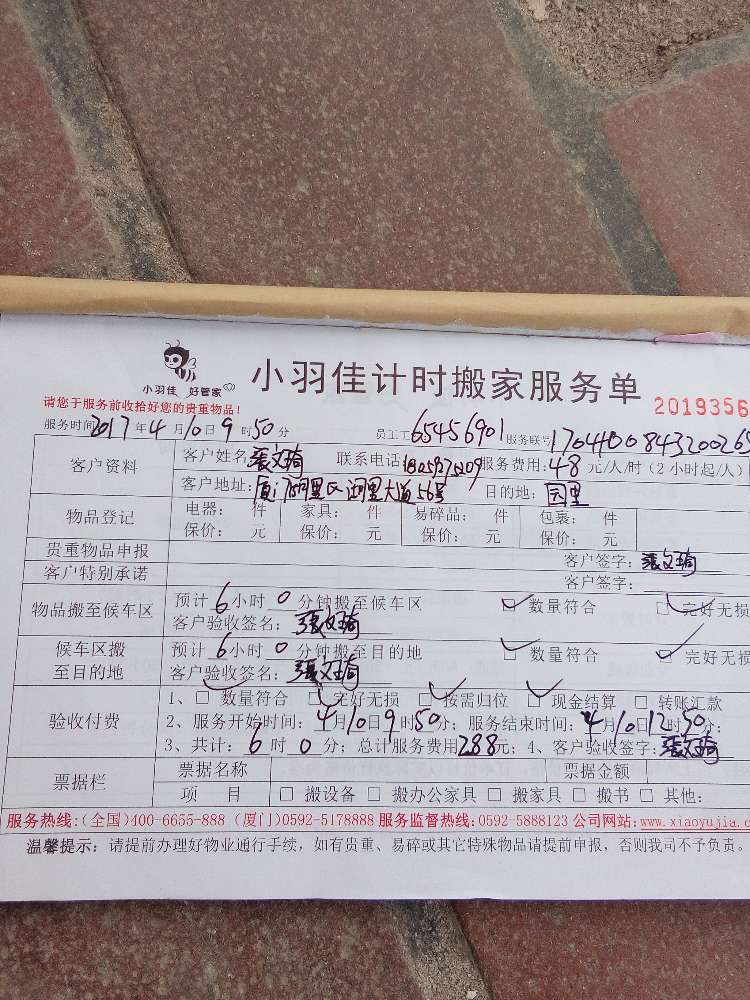 小羽佳 好管家
小羽佳计时搬家服务单
2019356
请您于服务前收拾好您的贵重物品!
服务时间 2017年4月10日9时50分 员工工 65456901 服务联号 170410084320026
客户资料 客户姓名: 张文琦 联系电话: 服务费用: 48 元/人/时 (2小时起/人)
客户地址: 大道56号 目的地: 园里
物品登记 电器: 件 家具: 件 易碎品: 件 包裹: 件
保价: 元 保价: 元 保价: 元 保价: 元
贵重物品申报 客户签字: 张文琦
客户特别承诺 客户签字:
物品搬至候车区 预计 6 小时 0 分钟搬至候车区 ☑ 数量符合 ☑ 完好无损
客户验收签名: 张文琦
候车区搬至目的地 预计 6 小时 0 分钟搬至目的地 ☑ 数量符合 ☑ 完好无损
客户验收签名: 张文琦
验收付费 1、☑ 数量符合 ☑ 完好无损 ☑ 按需归位 ☑ 现金结算 □ 转账汇款
2、服务开始时间: 4月10日9时50分; 服务结束时间: 4月10日12时50分;
3、共计: 6 时 0 分; 总计服务费用 288 元; 4、客户验收签字: 张文琦
票据栏 票据名称 票据金额
项 目 □ 搬设备 □ 搬办公家具 □ 搬家具 □ 搬书 □ 其他:
服务热线:(全国)400-6655-888 (厦门)0592-5178888 服务监督热线:0592-5888123 公司网站:www.xiaoyujia.c
温馨提示: 请提前办理好物业通行手续, 如有贵重、易碎或其它特殊物品请提前申报, 否则我司不予负责。